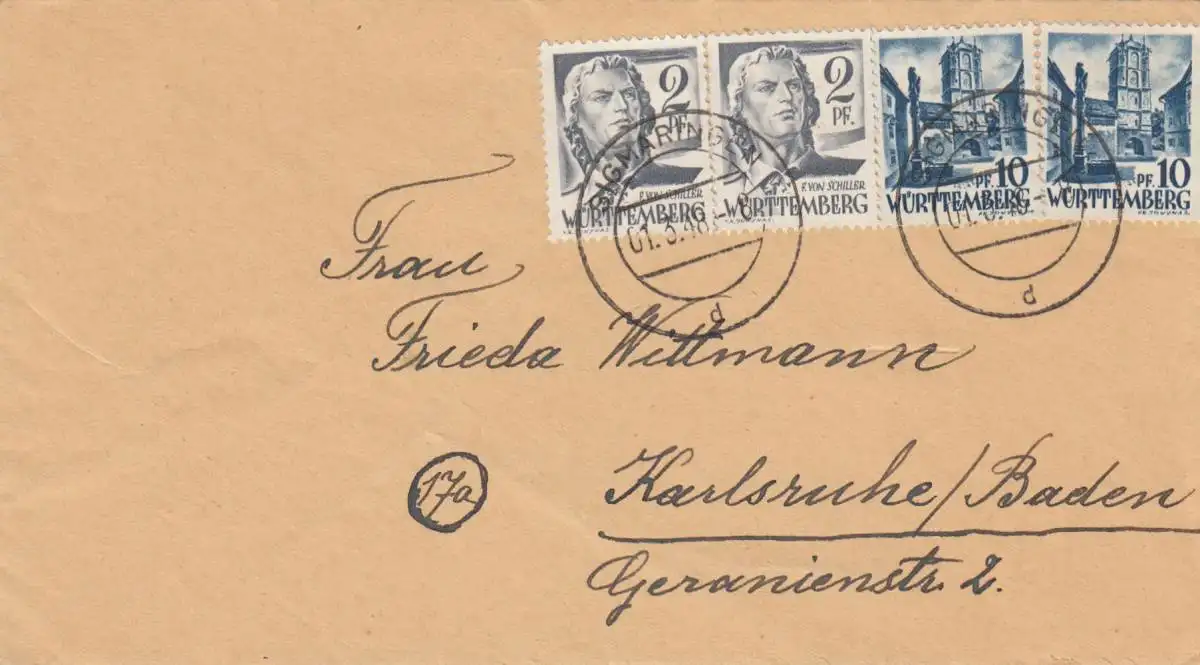 2
PF.
F. VON SCHILLER
WÜRTTEMBERG
2
PF.
F. VON SCHILLER
WÜRTTEMBERG
PF. 10
WÜRTTEMBERG
PF. 10
WÜRTTEMBERG
SIGMARINGEN
d
SIGMARINGEN
d
Frau
Frieda Wittmann
17a
Karlsruhe/Baden
Geranienstr. 2.